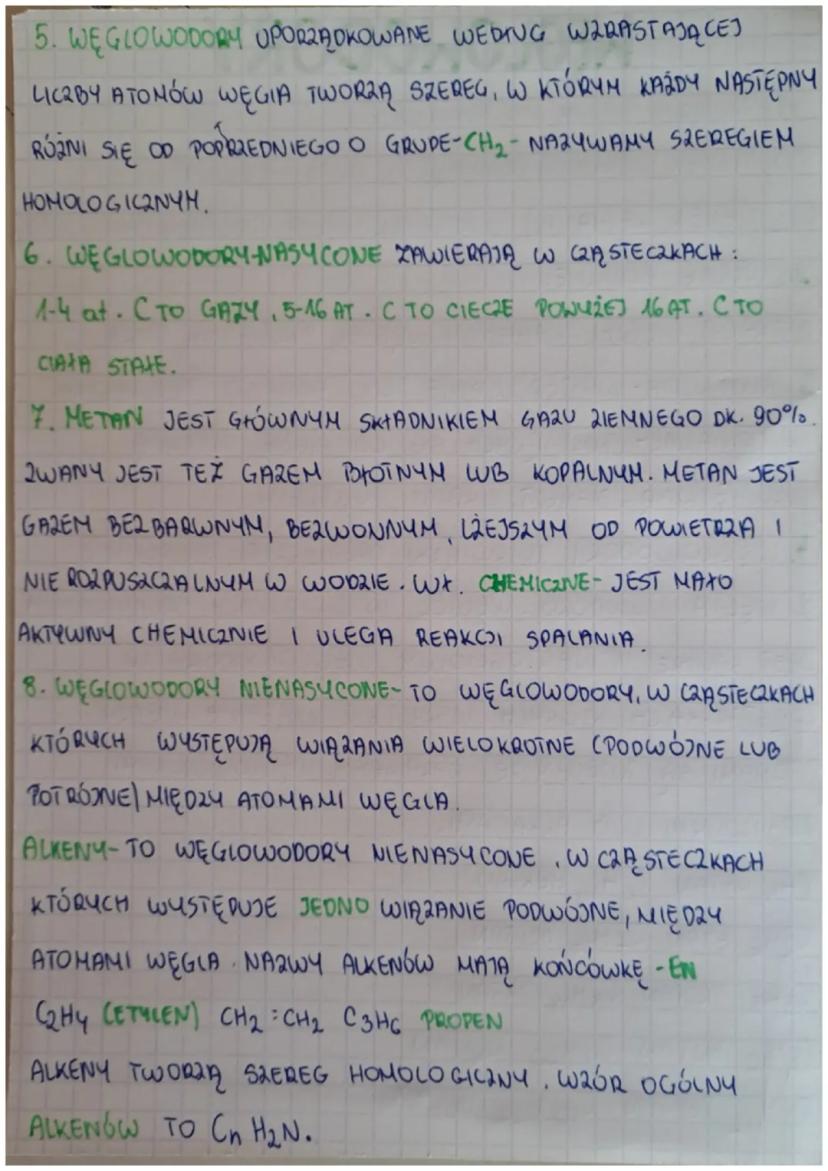 5. WĘGLOWODORY UPORZĄDKOWANE WEDŁUG WZRASTAJĄCEJ
LICZBY ATOMÓW WĘGLA TWORZĄ SZEREG, W KTÓRYM KAŻDY NASTĘPNY
RÓŻNI SIĘ OD POPRZEDNIEGO O GRUPE-CH₂- NAZYWAMY SZEREGIEM
HOMOLOGICZNYM.
6. WĘGLOWODORY-NASYCONE ZAWIERAJĄ W CZĄSTECZKACH :
1-4 at. C TO GAZY, 5-16 AT. C TO CIECZE POWYŻEJ 16 AT. C TO
CIAŁA STAŁE.
7. METAN JEST GŁÓWNYM SKŁADNIKIEM GAZU ZIEMNEGO OK. 90%.
ZWANY JEST TEŻ GAZEM BŁOTNYM LUB KOPALNYM. METAN JEST
GAZEM BEZBARWNYM, BEZWONNYM, LŻEJSZYM OD POWIETRZA I
NIE ROZPUSZCZALNYM W WODZIE. WŁ. CHEMICZNE- JEST MAŁO
AKTYWNY CHEMICZNIE I ULEGA REAKCJI SPALANIA.
8. WĘGLOWODORY NIENASYCONE- TO WĘGLOWODORY, W CZĄSTECZKACH
KTÓRYCH WYSTĘPUJĄ WIĄZANIA WIELOKROTNE (PODWÓJNE LUB
POTRÓJNE) MIĘDZY ATOMAMI WĘGLA.
ALKENY- TO WĘGLOWODORY NIENASYCONE, W CZĄSTECZKACH
KTÓRYCH WYSTĘPUJE JEDNO WIĄZANIE PODWÓJNE, MIĘDZY
ATOMAMI WĘGLA. NAZWY ALKENÓW MAJĄ KOŃCÓWKĘ -EN
C2H4 (ETYLEN) CH2 : CH2 C3H6 PROPEN
ALKENY TWORZĄ SZEREG HOMOLOGICZNY. WZÓR OGÓLNY
ALKENÓW TO Cn H2N.